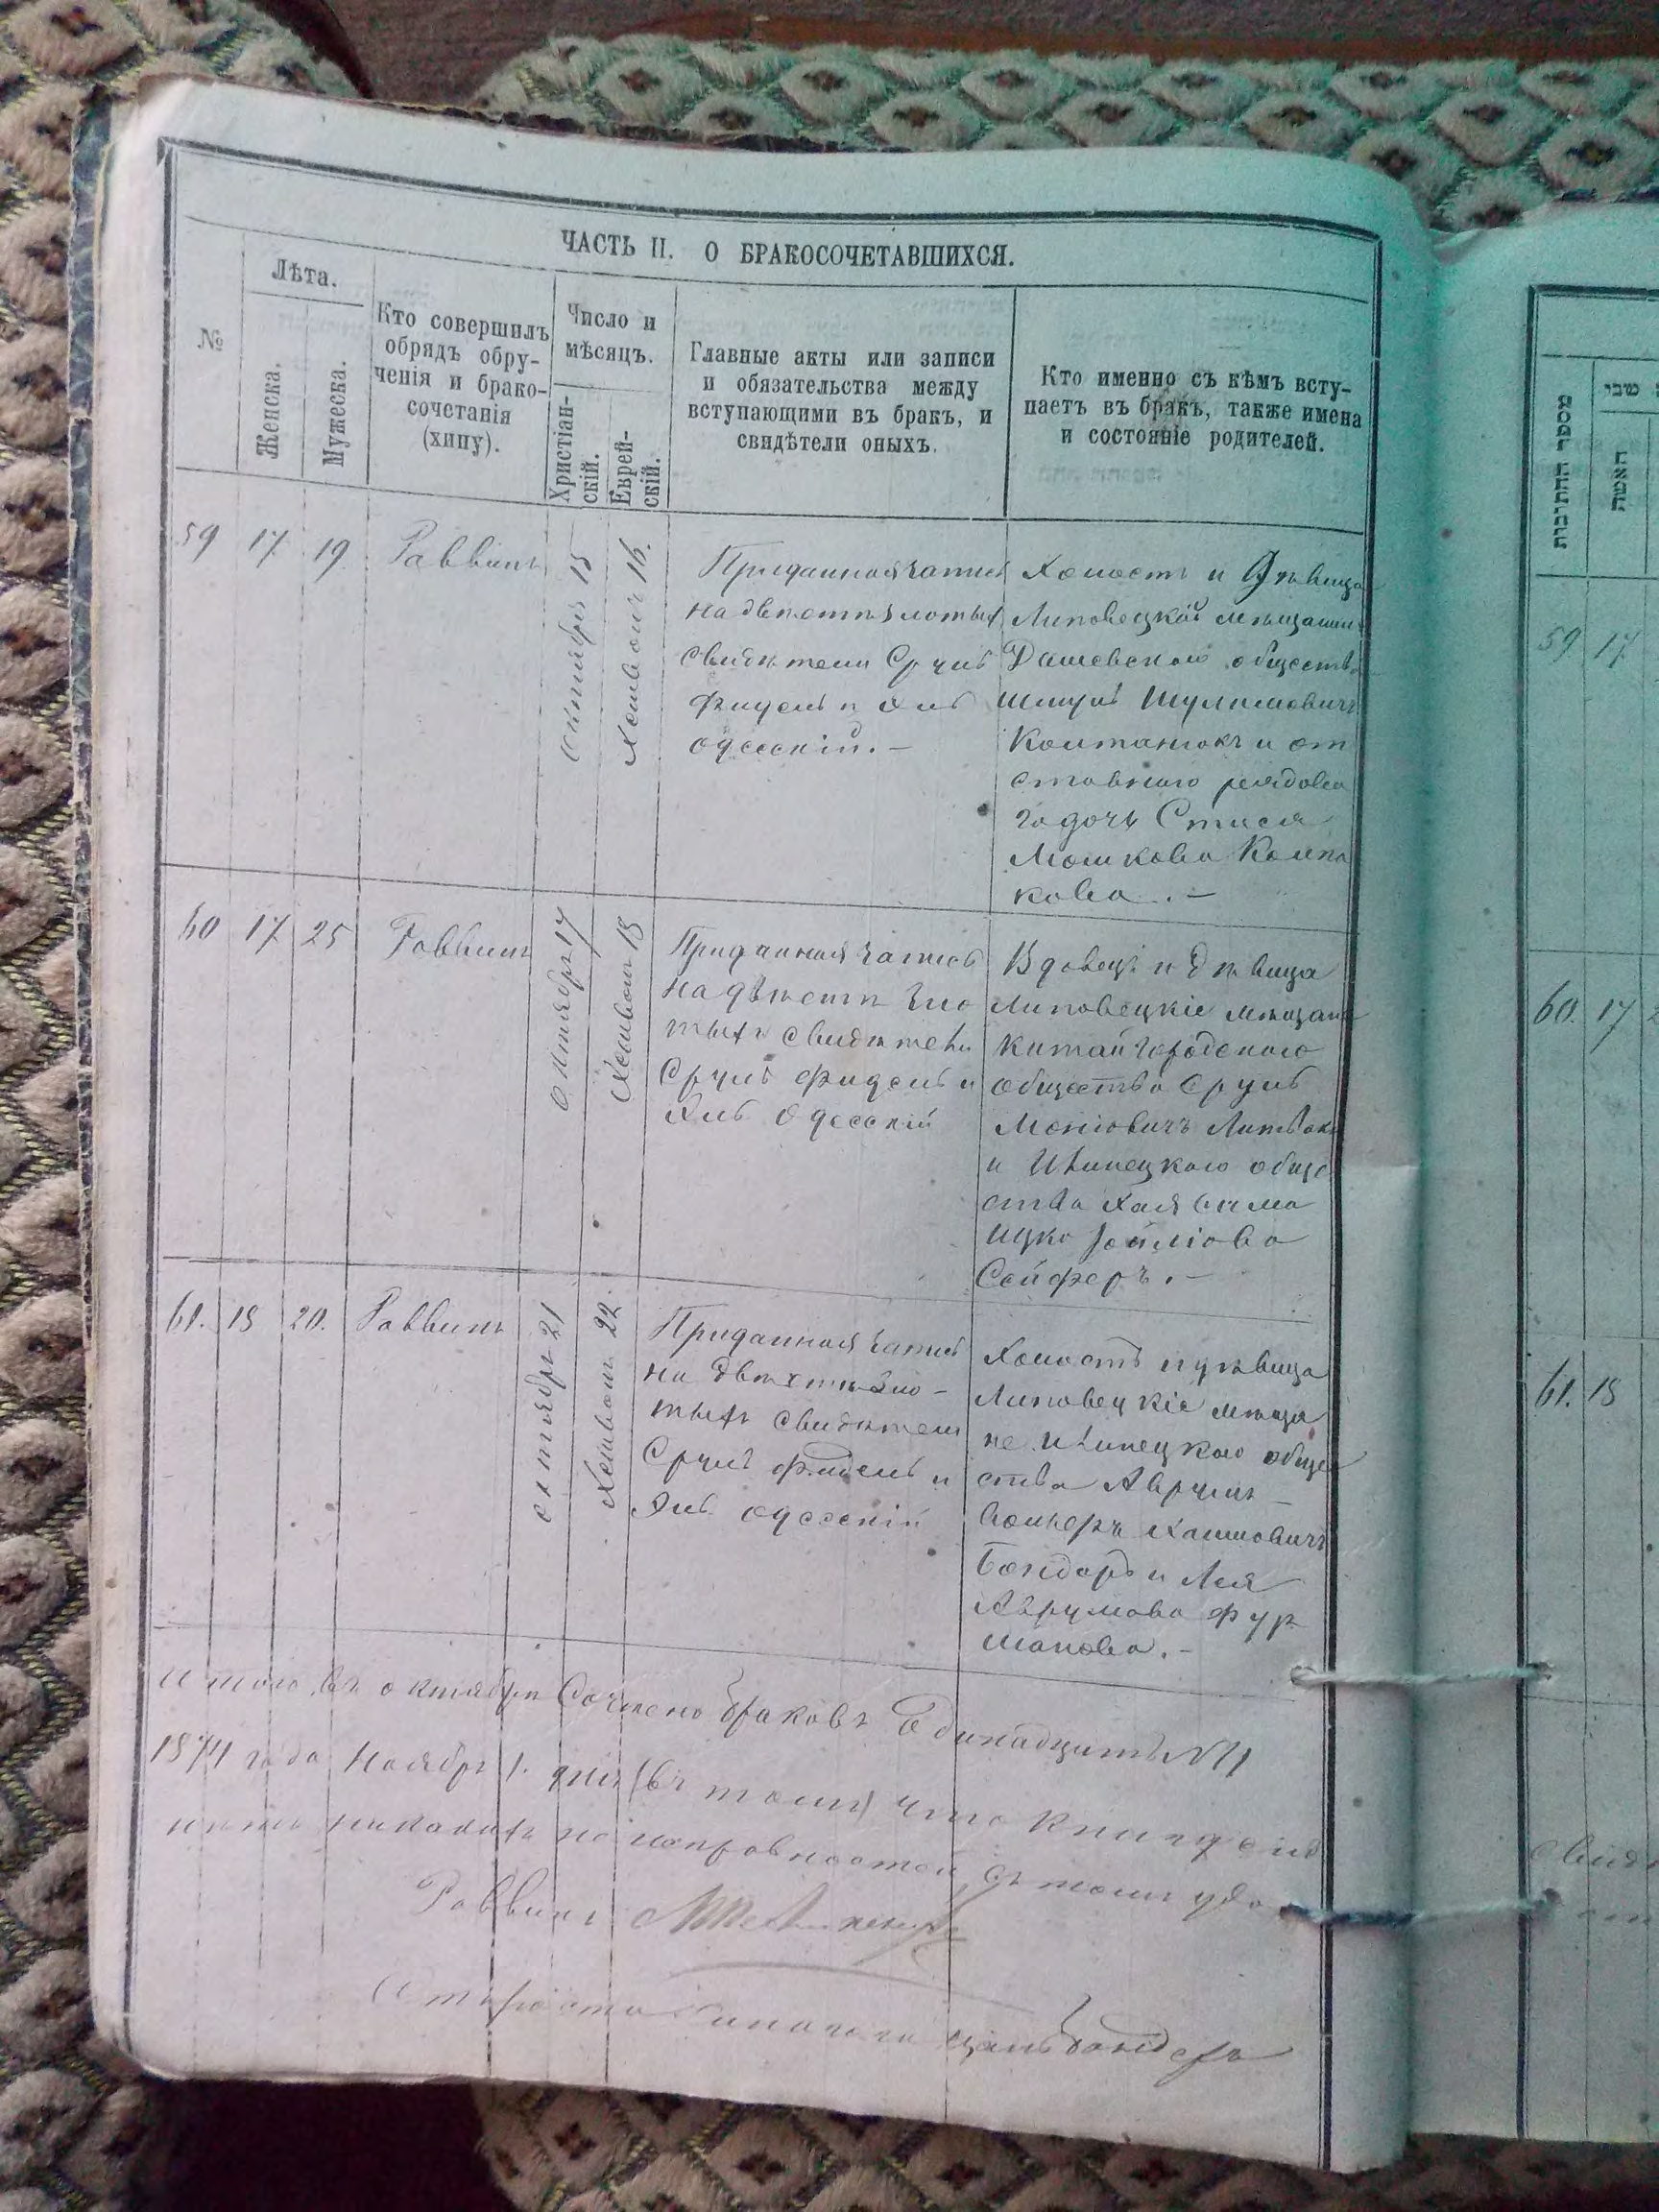 ЧАСТЬ II. О БРАКОСОЧЕТАВШИХСЯ.
№
Лѣта.
Женска.
Мужеска.
Кто совершилъ
обрядъ обру-
ченія и брако-
сочетанія
(хипу).
Число и
мѣсяцъ.
Христіан-
скій.
Еврей-
скій.
Главные акты или записи
и обязательства между
вступающими въ бракъ, и
свидѣтели оныхъ.
Кто именно съ кѣмъ всту-
паетъ въ бракъ, также имена
и состояніе родителей.
59 17 19. Раввинъ
октября 15
Хешвонъ 16.
Приданная запись
на двѣсти злотых
свидѣтели Сруль
Фидель и Эль
Одесскій. –
Холостъ и Дѣвица
Липовецкій мѣщанин
Дашевского обществ
Шмуль Шулимовичъ
Колтанюкъ и от
ставного рядово
го дочь
Мошкова Колпа
кова. –
60 17 25 Раввинъ
Октябрь 17
Хешвонъ 18
Приданная запись
на двѣсти зло
тыхъ свидѣтели
Сруль Фидель и
Эль Одесскій
Вдовецъ и дѣвица
Липовецкіе мѣщане
Китайгородского
общества Сруль
Моніовичъ Литвакъ
и Илинецкого обще
ства Хая Сима
Ицко
Сойферъ. –
61. 18 20. Раввинъ
октябрь 21
Хешвонъ 22.
Приданная запись
на двѣсти зло-
тыхъ свидѣтели
Сруль Фидель и
Эль Одесскій
Холостъ и дѣвица
Липовецкіе мѣща
не Илинецкого обще
ства Аврумъ –
Хаимовичъ
Бондарь и Лея
Аврумова Фур
манова. –
Итого въ октябрѣ Сочтено браковъ Одинадцать N 11
1874 года Ноября 1. дня (въ томъ) что въ книгѣ сей
нѣтъ никакихъ неисправностей въ томъ удо
Раввинъ
Староста
Бондарь
מספר החתונות
שבי
האשה
59 17
60. 17 2
61. 18
свид